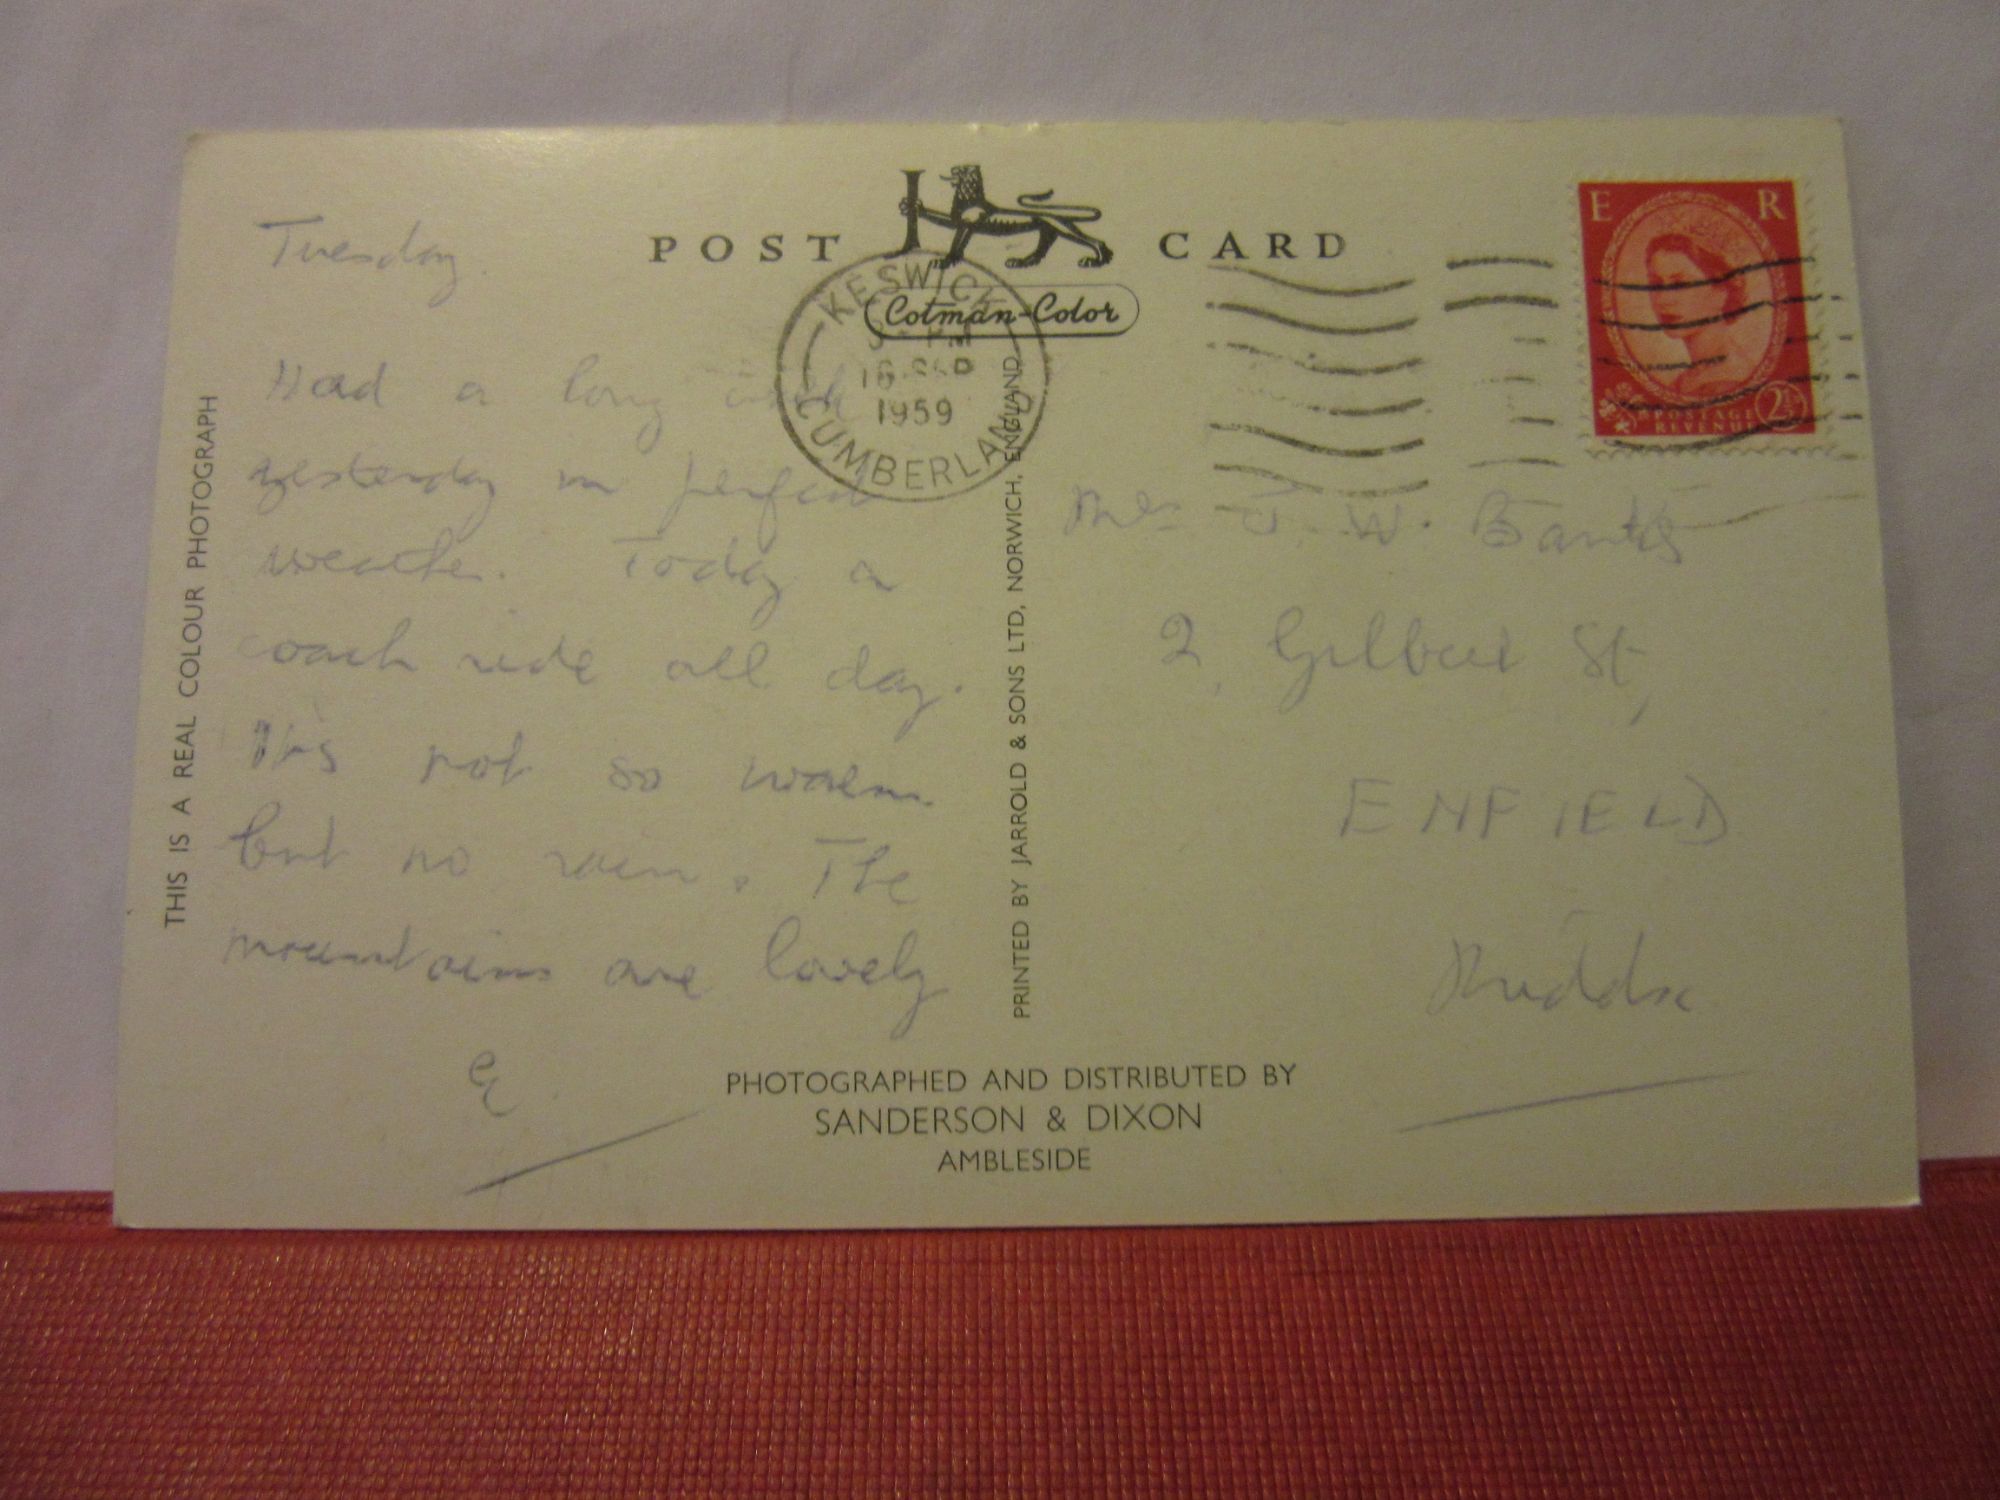 POST CARD
Cotman-Color
KESWICK
PM
SEP
1959
CUMBERLAND
E R
POSTAGE
REVENUE
2½D
Tuesday.
Had a long
yesterday in perfect
weather. Today a
coach ride all day.
It's not so warm
but no rain. The
mountains are lovely
E
Mrs J. W. Banks
2, Gilbert St,
ENFIELD
Middx
THIS IS A REAL COLOUR PHOTOGRAPH
PRINTED BY JARROLD & SONS LTD, NORWICH, ENGLAND
PHOTOGRAPHED AND DISTRIBUTED BY
SANDERSON & DIXON
AMBLESIDE